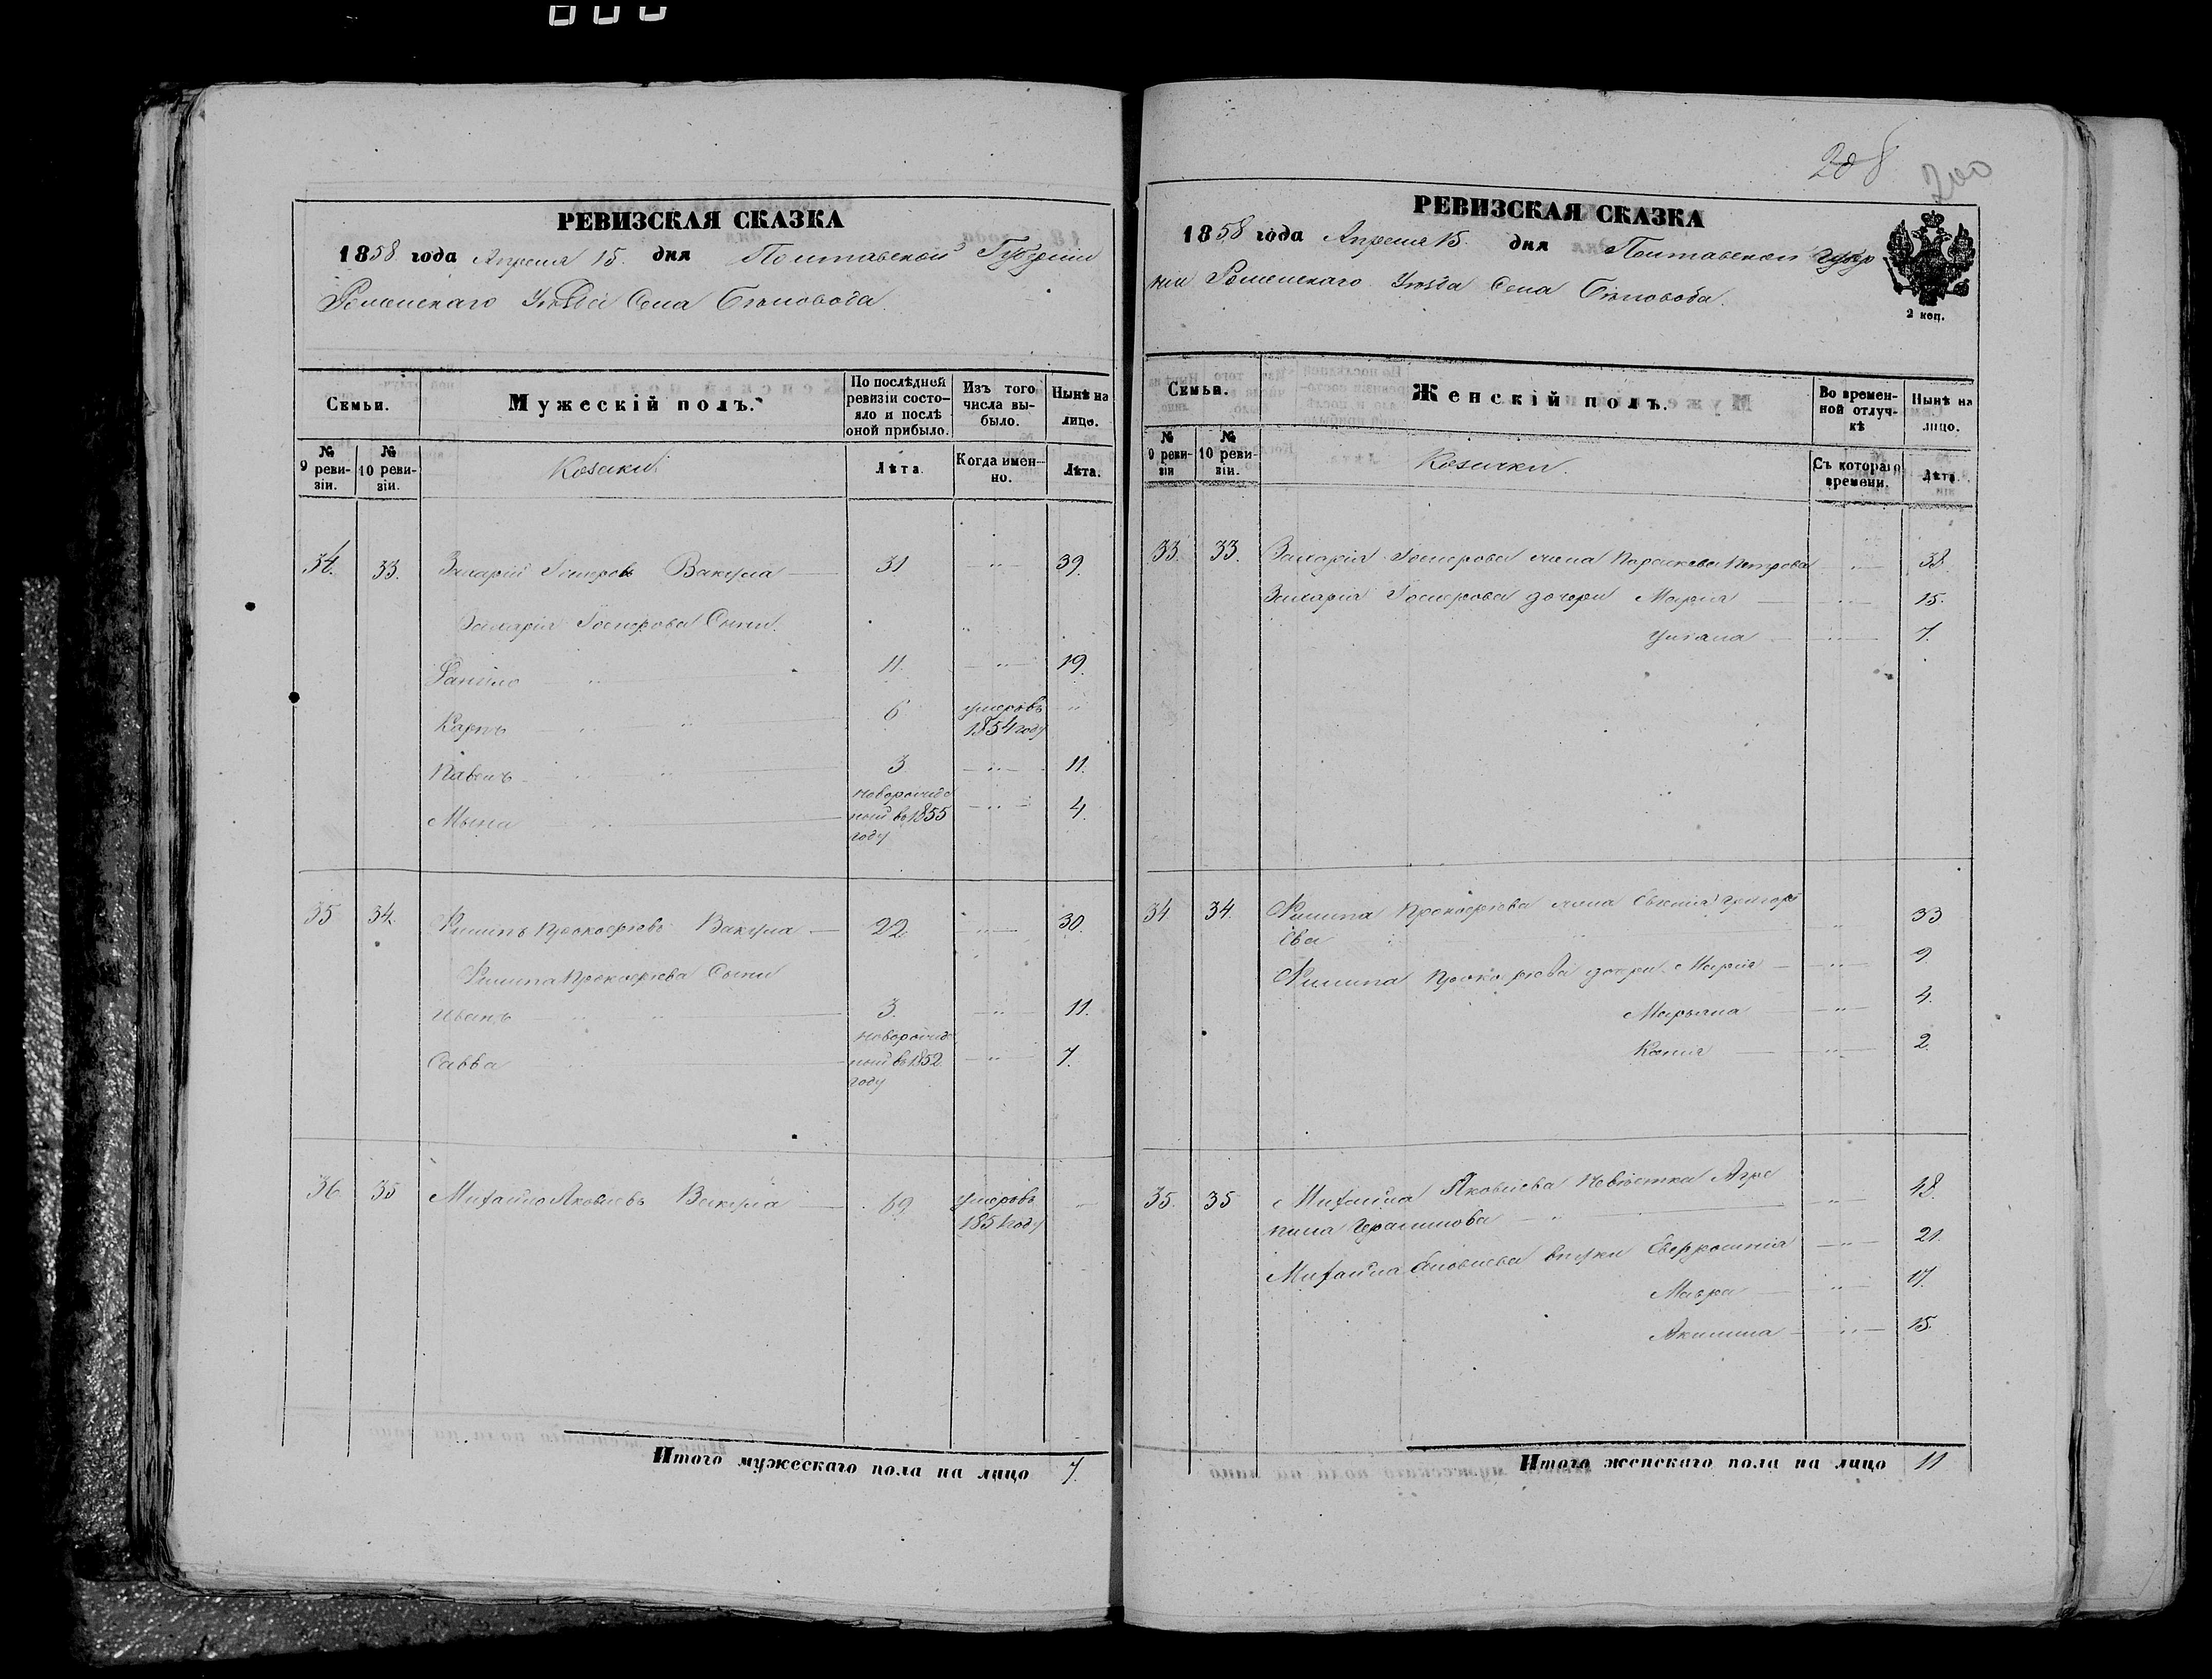 РЕВИЗСКАЯ СКАЗКА
1858 года Апреля 15. дня Полтавской Губерніи
Роменскаго Уѣзда Села Бѣловода.
Семьи.
Мужескій полъ.
По послѣдней ревизіи состояло и послѣ оной прибыло.
Изъ того числа выбыло.
Нынѣ на лицо.
№ 9 ревизіи.
№ 10 ревизіи.
Козаки
Лѣта.
Когда именно.
Лѣта.
34. 33. Захарій Вакула 31 39.
Захарія Сыни.
Данило 11. 19.
Карпъ 6 умеръ въ
1854 году
Павелъ 3 11.
новорожде
Мына ный въ 1855 4.
году
35 34. Филипъ Прокофіевъ Вакула 22. 30.
Филипа Прокофіева Сыни
Иванъ 3. 11.
новорожд
Савва ный въ 1852 7.
году
36 35 Михайло Яковлевъ Вакула 69 умеръ въ
1851 году
Итого мужескаго пола на лицо 7.
208
200
РЕВИЗСКАЯ СКАЗКА
1858 года Апреля 15. дня Полтавской Губер
ніи Роменскаго Уѣзда Села Бѣловода.
2 коп.
Семьи.
Женскій полъ.
Во временной отлучкѣ
Нынѣ на лицо.
№ 9 ревизіи
№ 10 ревизіи.
Козачки.
Съ котораго времени.
Лѣта.
33. 33. Захарія жена Параскева Петрова 38.
Захарія дочери Марія 15.
Уліана 7.
34 34. Филипа Прокофіева жена Евгенія Григорі
ева 33
Филипа Прокофіева дочери Марія 9.
Марьяна 4.
Ксенія 2.
35. 35 Михайла Яковлева невѣстка Агре
пина Герасимова 48.
Михайла Яковлева внуки Евфросинія 21.
Мавра 17.
Акилина 15.
Итого женскаго пола на лицо 11